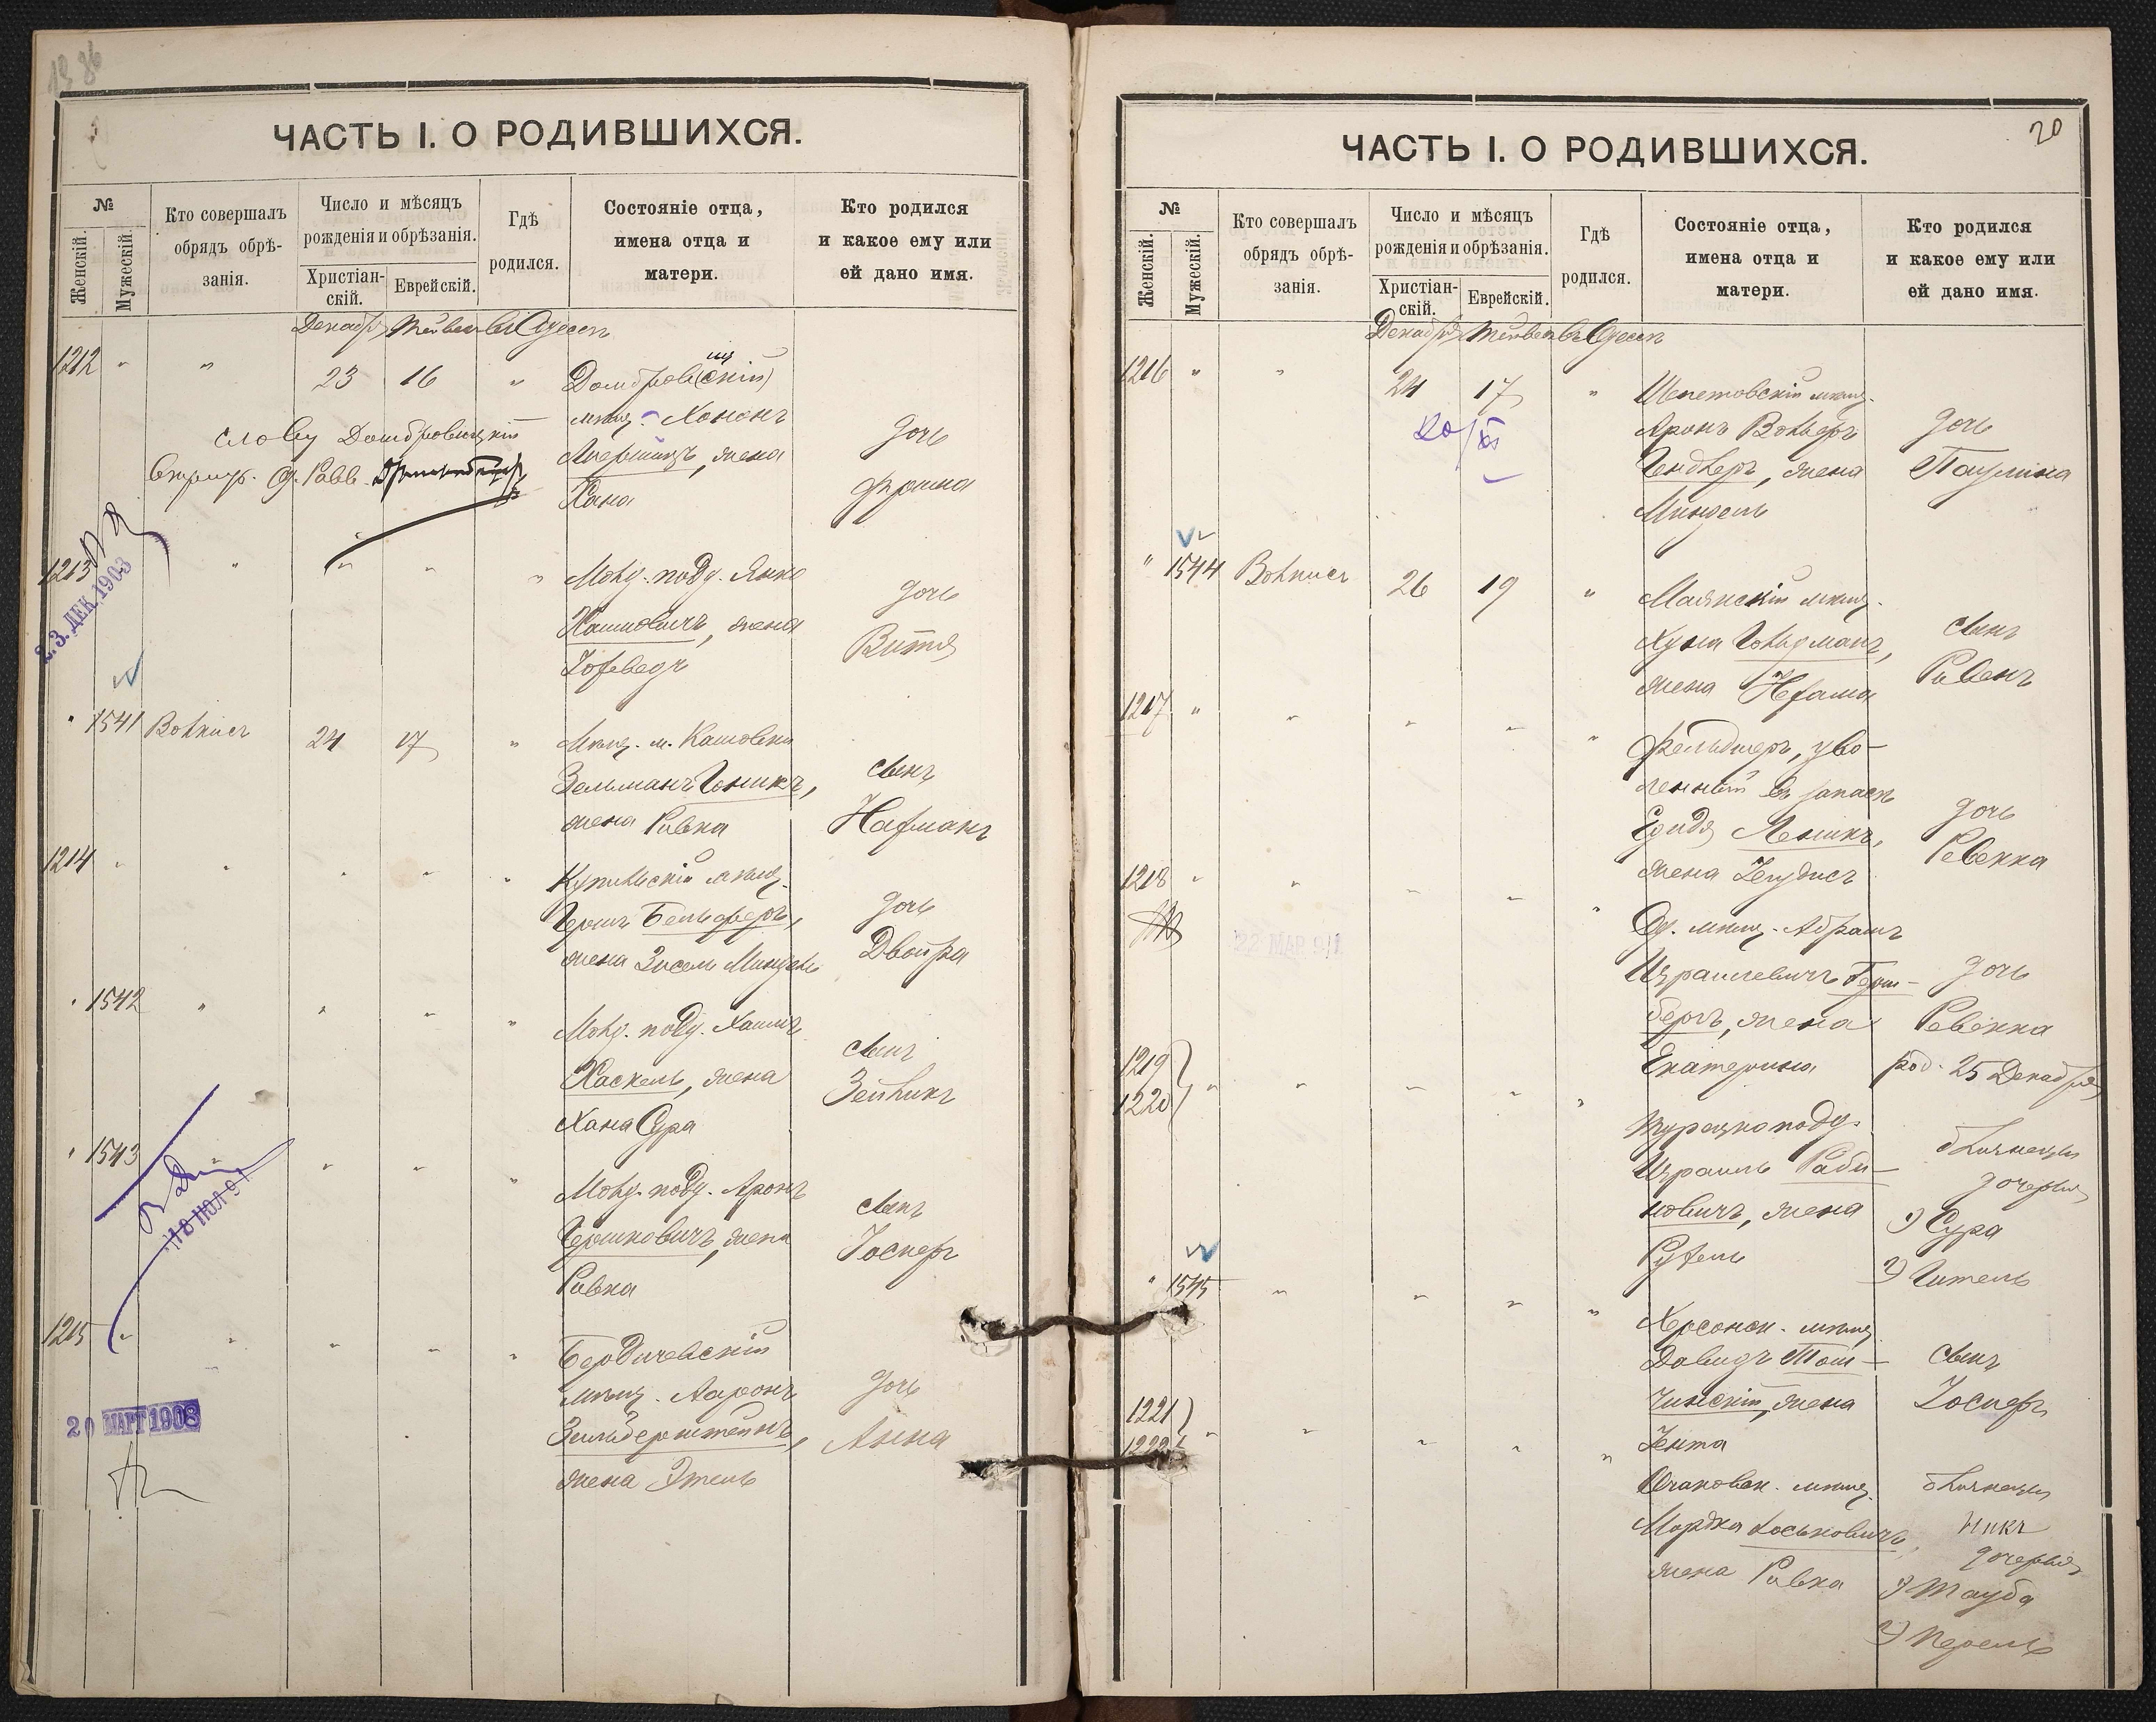 ЧАСТЬ I. О РОДИВШИХСЯ.
№
Женскій.
Мужескій.
Кто совершалъ
обрядъ обрѣ-
занія.
Число и мѣсяцъ
рожденія и обрѣзанія.
Христіан-
скій.
Еврейскій.
Гдѣ
родился.
Состояніе отца,
имена отца и
матери.
Кто родился
и какое ему или
ей дано имя.
Декабр Тейвеи въ Одессѣ
1212 " " 23 16 "
мѣщ. Хононъ
жена
Хана
дочь
Фрима
слову Домбровицкій
1213 " " " " "
Молд. подд. Янкел
Хаимовичъ, жена
Іохеведъ
дочь
Витя
23 ДЕК. 1903
" 1541 Вольнисъ 24 17 "
Мѣщ. м. Кашовки
Зельманъ Гоникъ,
жена Ривка
сынъ
Нахманъ
1214 " " " " "
Купильскій мѣщ.
Гершъ Бельферъ,
жена Зисель Миндель
дочь
Двойра
" 1542 " " " "
Молд. подд. Хаимъ
Хаскель, жена
Хана Сура
сынъ
Зейликъ
" 1543 " " " "
Молд. подд. Аронъ
Гершковичъ, жена
Ривка
сынъ
Іосифъ
1215 " " " " "
Бердичевскій
мѣщ. Ааронъ
Зильберштейнъ,
жена Этель
дочь
Анна
20 МАРТ 1908
ЧАСТЬ I. О РОДИВШИХСЯ.
20
№
Женскій.
Мужескій.
Кто совершалъ
обрядъ обрѣ-
занія.
Число и мѣсяцъ
рожденія и обрѣзанія.
Христіан-
скій.
Еврейскій.
Гдѣ
родился.
Состояніе отца,
имена отца и
матери.
Кто родился
и какое ему или
ей дано имя.
Декабря Тейвеи въ Одессѣ
1216 " " 24 17 "
Шепетовскій мѣщ.
Аронъ Вольферъ
Гендлеръ, жена
Миндель
дочь
Паулина
" 1544 Вольнисъ 26 19 "
Маякскій мѣщ.
Хуна Гольдманъ,
жена Нехама
сынъ
Рувенъ
1217 " " " " "
Фельдшеръ, уво-
ленный въ запасъ
жена
дочь
Ревекка
1218 " " " " "
Од. мѣщ. Абрамъ
Израилевичъ Герш-
бергъ, жена
Екатерина
дочь
Ревекка
род. 25 Декабря
22 МАР 911
1219
1220 " " " " "
Турецко подд.
Израиль Раби-
новичъ, жена
Рухель
близнецы
дочерья
1) Сура
2) Гитель
" 1545 " " " "
Херсонск. мѣщ.
Давидъ Том-
чинскій, жена
Іента
сынъ
Іосифъ
1221
1222 " " " " "
Очаковск. мѣщ.
Мордка Іоськовичъ,
жена Ривка
близнецы
дочерья
1) Тауба
2) Перель